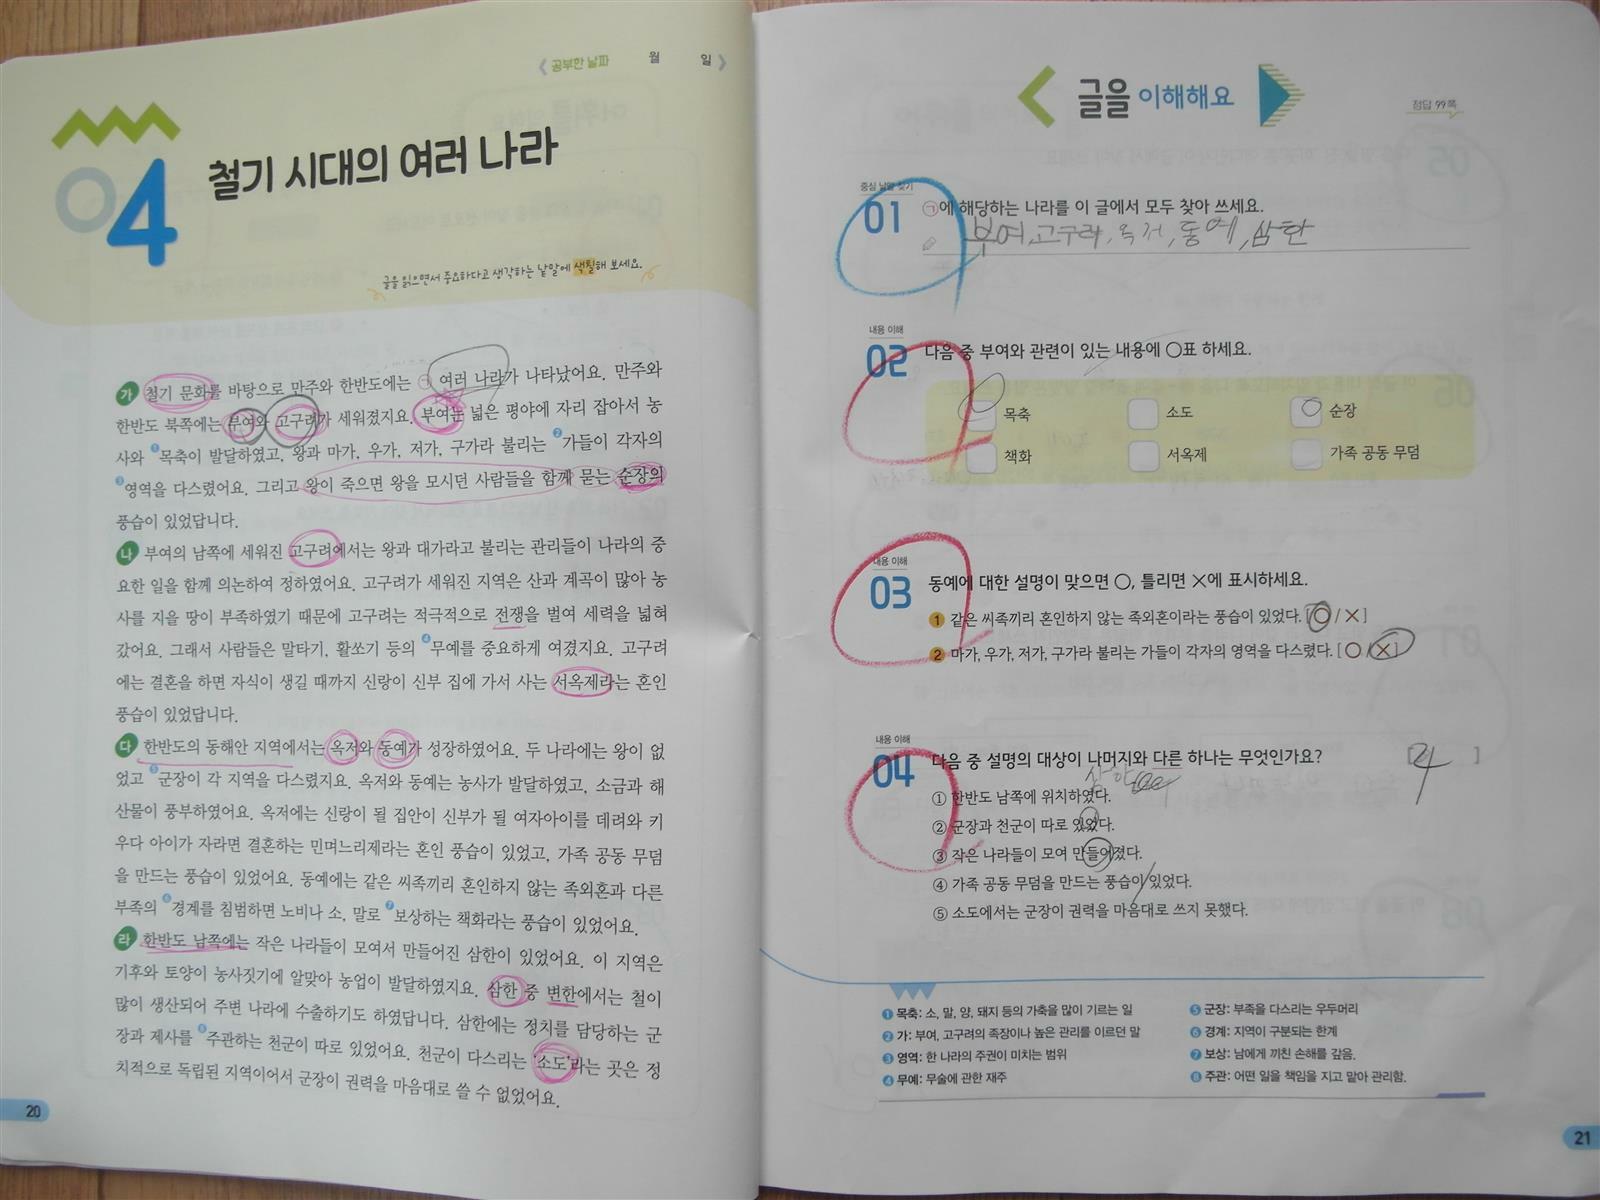 공부한 날짜 월 일
04 철기 시대의 여러 나라
글을 읽으면서 중요하다고 생각하는 낱말에 색칠해 보세요.
가 철기 문화를 바탕으로 만주와 한반도에는 ㉠여러 나라가 나타났어요. 만주와
한반도 북쪽에는 부여와 고구려가 세워졌지요. 부여는 넓은 평야에 자리 잡아서 농
사와 ❶목축이 발달하였고, 왕과 마가, 우가, 저가, 구가라 불리는 ❷가들이 각자의
❸영역을 다스렸어요. 그리고 왕이 죽으면 왕을 모시던 사람들을 함께 묻는 순장의
풍습이 있었답니다.
나 부여의 남쪽에 세워진 고구려에서는 왕과 대가라고 불리는 관리들이 나라의 중
요한 일을 함께 의논하여 정하였어요. 고구려가 세워진 지역은 산과 계곡이 많아 농
사를 지을 땅이 부족하였기 때문에 고구려는 적극적으로 전쟁을 벌여 세력을 넓혀
갔어요. 그래서 사람들은 말타기, 활쏘기 등의 ❹무예를 중요하게 여겼지요. 고구려
에는 결혼을 하면 자식이 생길 때까지 신랑이 신부 집에 가서 사는 서옥제라는 혼인
풍습이 있었답니다.
다 한반도의 동해안 지역에서는 옥저와 동예가 성장하였어요. 두 나라에는 왕이 없
었고 ❺군장이 각 지역을 다스렸지요. 옥저와 동예는 농사가 발달하였고, 소금과 해
산물이 풍부하였어요. 옥저에는 신랑이 될 집안이 신부가 될 여자아이를 데려와 키
우다 아이가 자라면 결혼하는 민며느리제라는 혼인 풍습이 있었고, 가족 공동 무덤
을 만드는 풍습이 있었어요. 동예에는 같은 씨족끼리 혼인하지 않는 족외혼과 다른
부족의 ❻경계를 침범하면 노비나 소, 말로 ❼보상하는 책화라는 풍습이 있었어요.
라 한반도 남쪽에는 작은 나라들이 모여서 만들어진 삼한이 있었어요. 이 지역은
기후와 토양이 농사짓기에 알맞아 농업이 발달하였지요. 삼한 중 변한에서는 철이
많이 생산되어 주변 나라에 수출하기도 하였답니다. 삼한에는 정치를 담당하는 군
장과 제사를 ❽주관하는 천군이 따로 있었어요. 천군이 다스리는 '소도'라는 곳은 정
치적으로 독립된 지역이어서 군장이 권력을 마음대로 쓸 수 없었어요.
20
글을 이해해요
정답 99쪽
중심 낱말 찾기
01 ㉠에 해당하는 나라를 이 글에서 모두 찾아 쓰세요.
부여, 고구려, 옥저, 동예, 삼한
내용 이해
02 다음 중 부여와 관련이 있는 내용에 ○표 하세요.
목축 소도 순장
책화 서옥제 가족 공동 무덤
내용 이해
03 동예에 대한 설명이 맞으면 ○, 틀리면 ×에 표시하세요.
1 같은 씨족끼리 혼인하지 않는 족외혼이라는 풍습이 있었다. [○/×]
2 마가, 우가, 저가, 구가라 불리는 가들이 각자의 영역을 다스렸다. [○/×]
내용 이해
04 다음 중 설명의 대상이 나머지와 다른 하나는 무엇인가요? [4]
① 한반도 남쪽에 위치하였다.
② 군장과 천군이 따로 있었다.
③ 작은 나라들이 모여 만들어졌다.
④ 가족 공동 무덤을 만드는 풍습이 있었다.
⑤ 소도에서는 군장이 권력을 마음대로 쓰지 못했다.
❶ 목축: 소, 말, 양, 돼지 등의 가축을 많이 기르는 일
❷ 가: 부여, 고구려의 족장이나 높은 관리를 이르던 말
❸ 영역: 한 나라의 주권이 미치는 범위
❹ 무예: 무술에 관한 재주
❺ 군장: 부족을 다스리는 우두머리
❻ 경계: 지역이 구분되는 한계
❼ 보상: 남에게 끼친 손해를 갚음.
❽ 주관: 어떤 일을 책임을 지고 맡아 관리함.
21